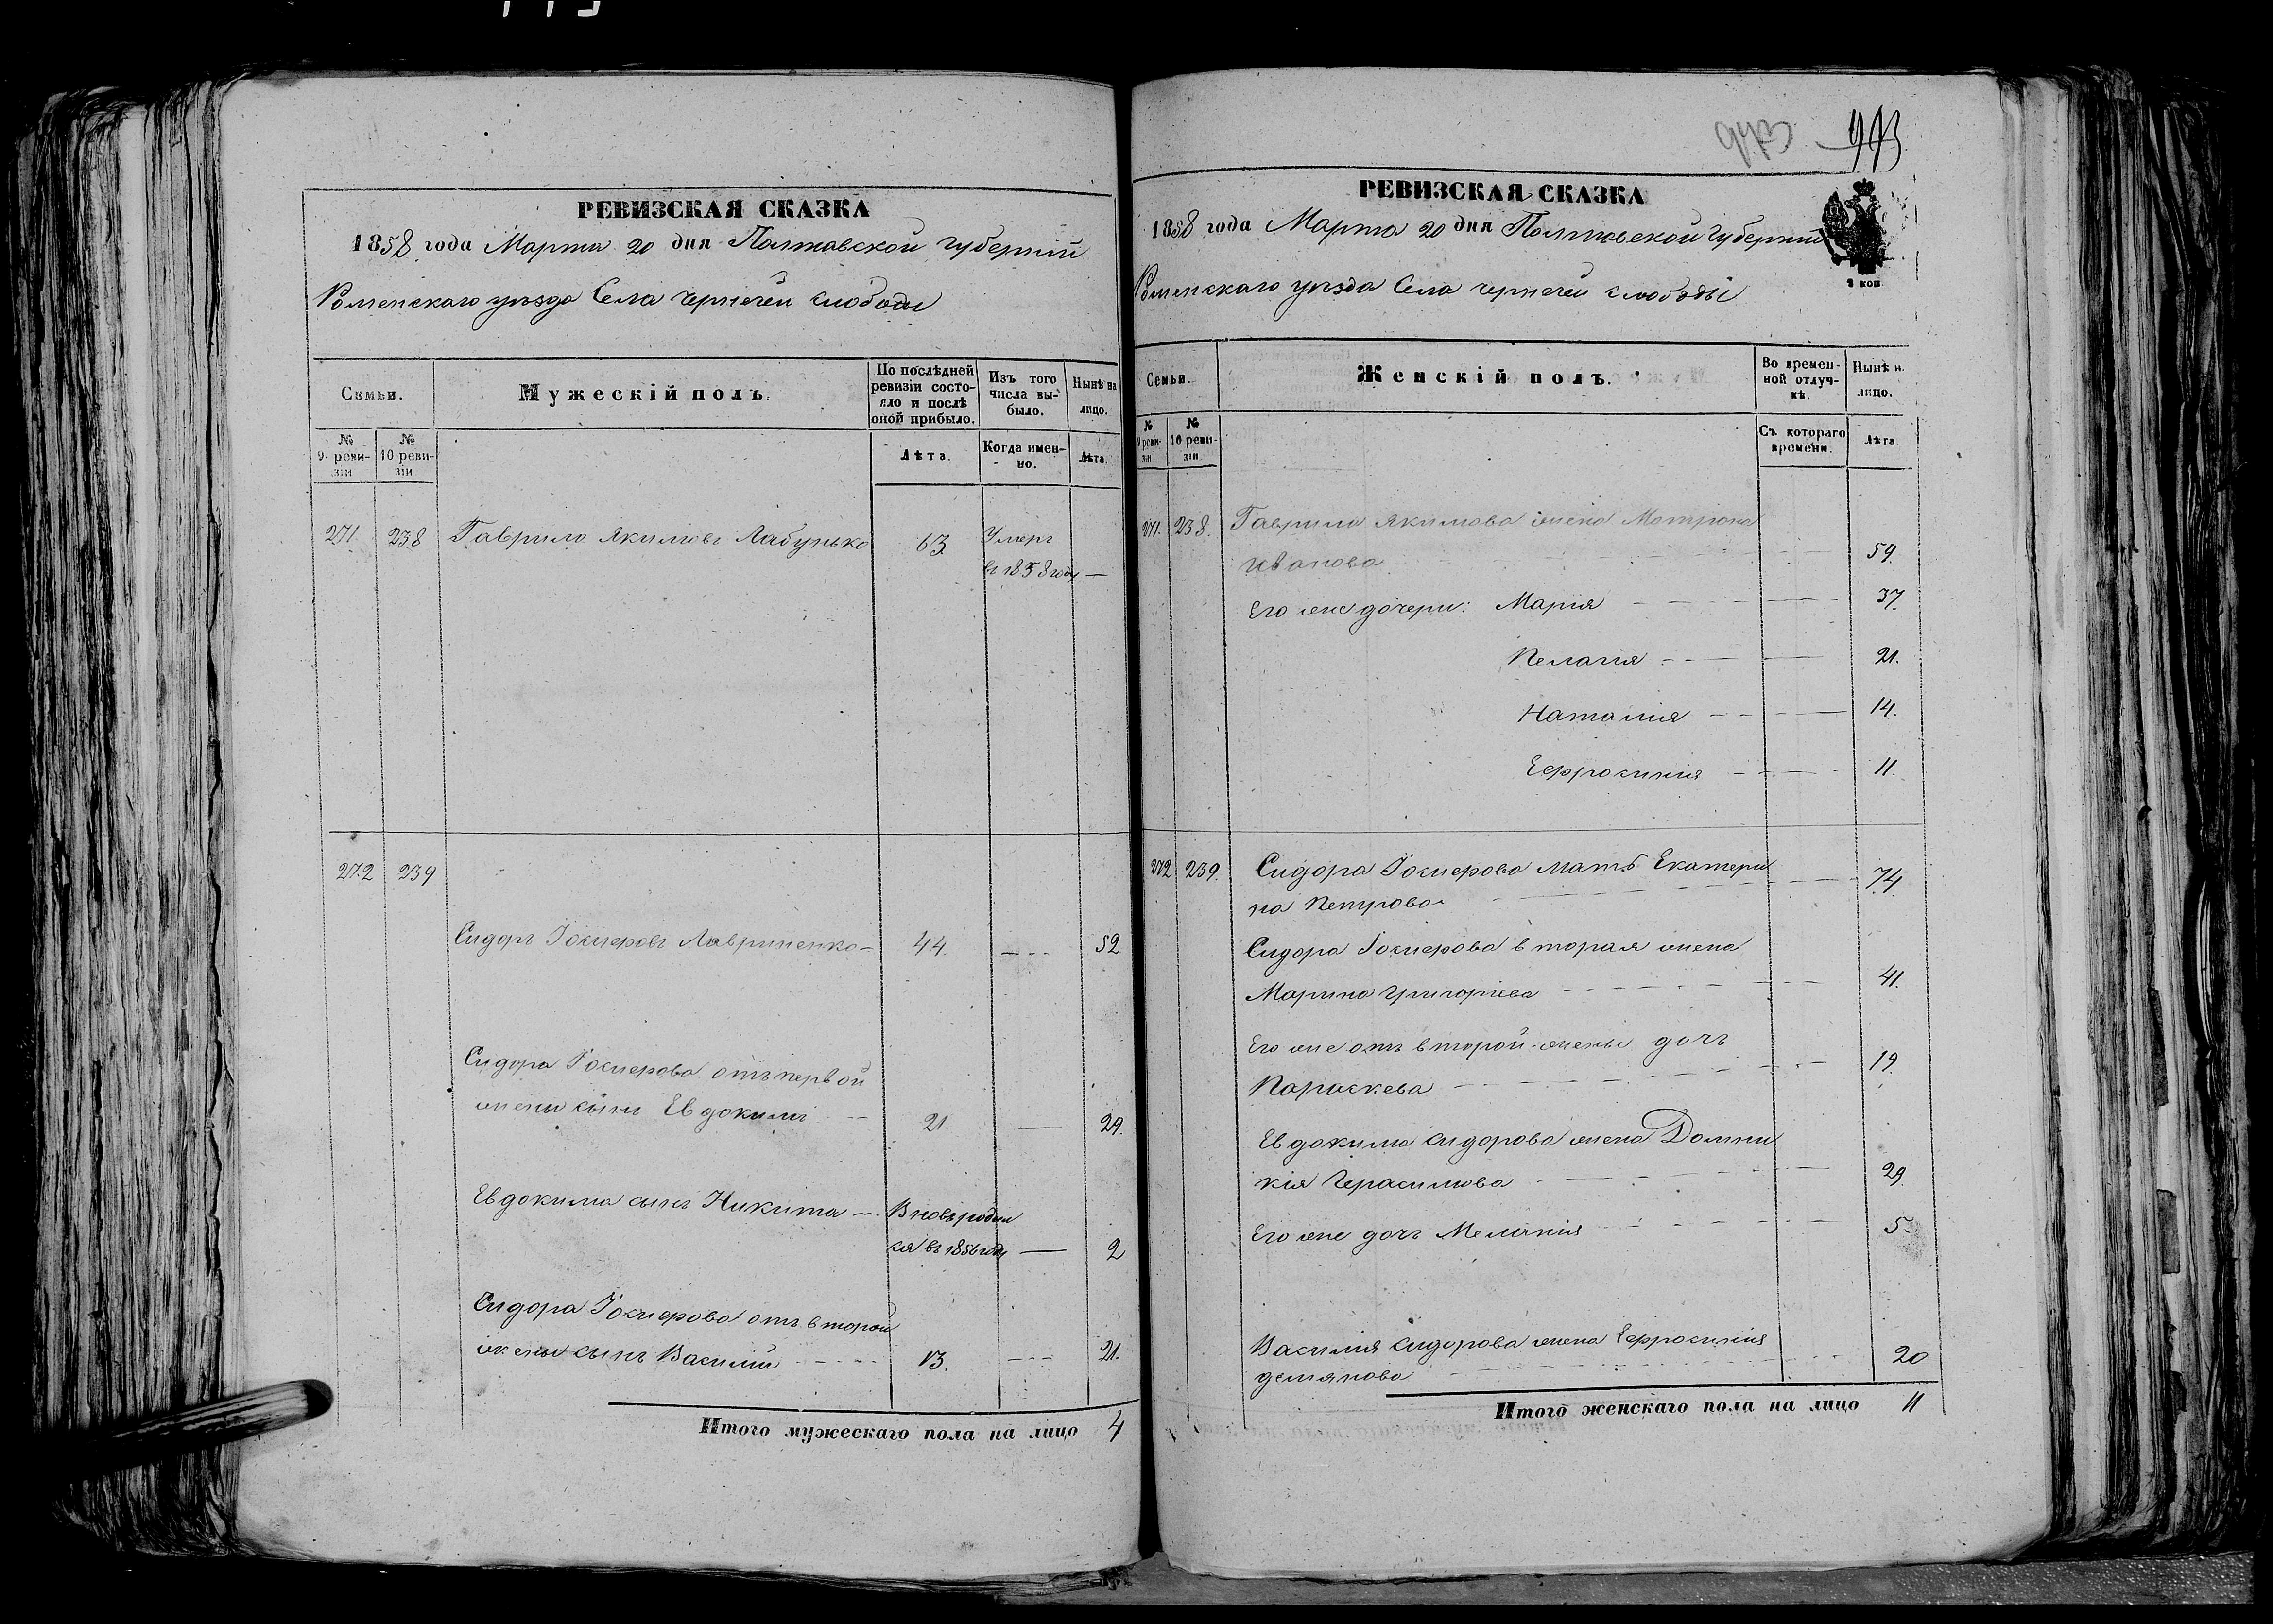 943 943
РЕВИЗСКАЯ СКАЗКА
1858 года Марта 20 дня Полтавской губерніи
Роменскаго уѣзда Села Чернечей слободы
Семьи.
Мужескій полъ.
По послѣдней ревизіи состояло и послѣ оной прибыло.
Изъ того числа выбыло.
Нынѣ на лицо.
№ 9 ревизіи
№ 10 ревизіи
Лѣта.
Когда именно.
Лѣта.
271. 238 Гаврило Якимовъ Лабунько 63. Умеръ
въ 1858 году —
272 239
Сидоръ Іосиеровъ Лавриненко — 44. — 52
Сидора Іосиерова отъ первой
жены сынъ Евдокимъ — 21 — 29.
Евдокима сынъ Никита — Вновь родил
ся въ 1856 году — 2
Сидора Іосиерова отъ второй
жены сынъ Василій — 13. — 21.
Итого мужескаго пола на лицо 4
РЕВИЗСКАЯ СКАЗКА
1858 года Марта 20 дня Полтавской губерніи
Роменскаго уѣзда Села Чернечей слободы
2 коп
Семьи.
Женскій полъ.
Во временной отлучкѣ.
Нынѣ н. лицо.
№ 9 ревизіи
№ 10 ревизіи
Съ котораго времени.
Лѣта
271. 238. Гаврила Якимова жена Матрона
Иванова — 59.
Его же дочери: Марія — 37.
Пелагія — 21.
Наталия — 14.
Ефросинія — 11.
272 239. Сидора Іосиерова мать Екатери
на Петрова — 74.
Сидора Іосиерова вторая жена
Марина Григоріева — 41.
Его же отъ второй жены дочь
Параскева — 19.
Евдокима Сидорова жена Домни
кія Герасимова — 29.
Его же дочь Меланія — 5
Василія Сидорова жена Ефросинія
Демянова — 20
Итого женскаго пола на лицо 11